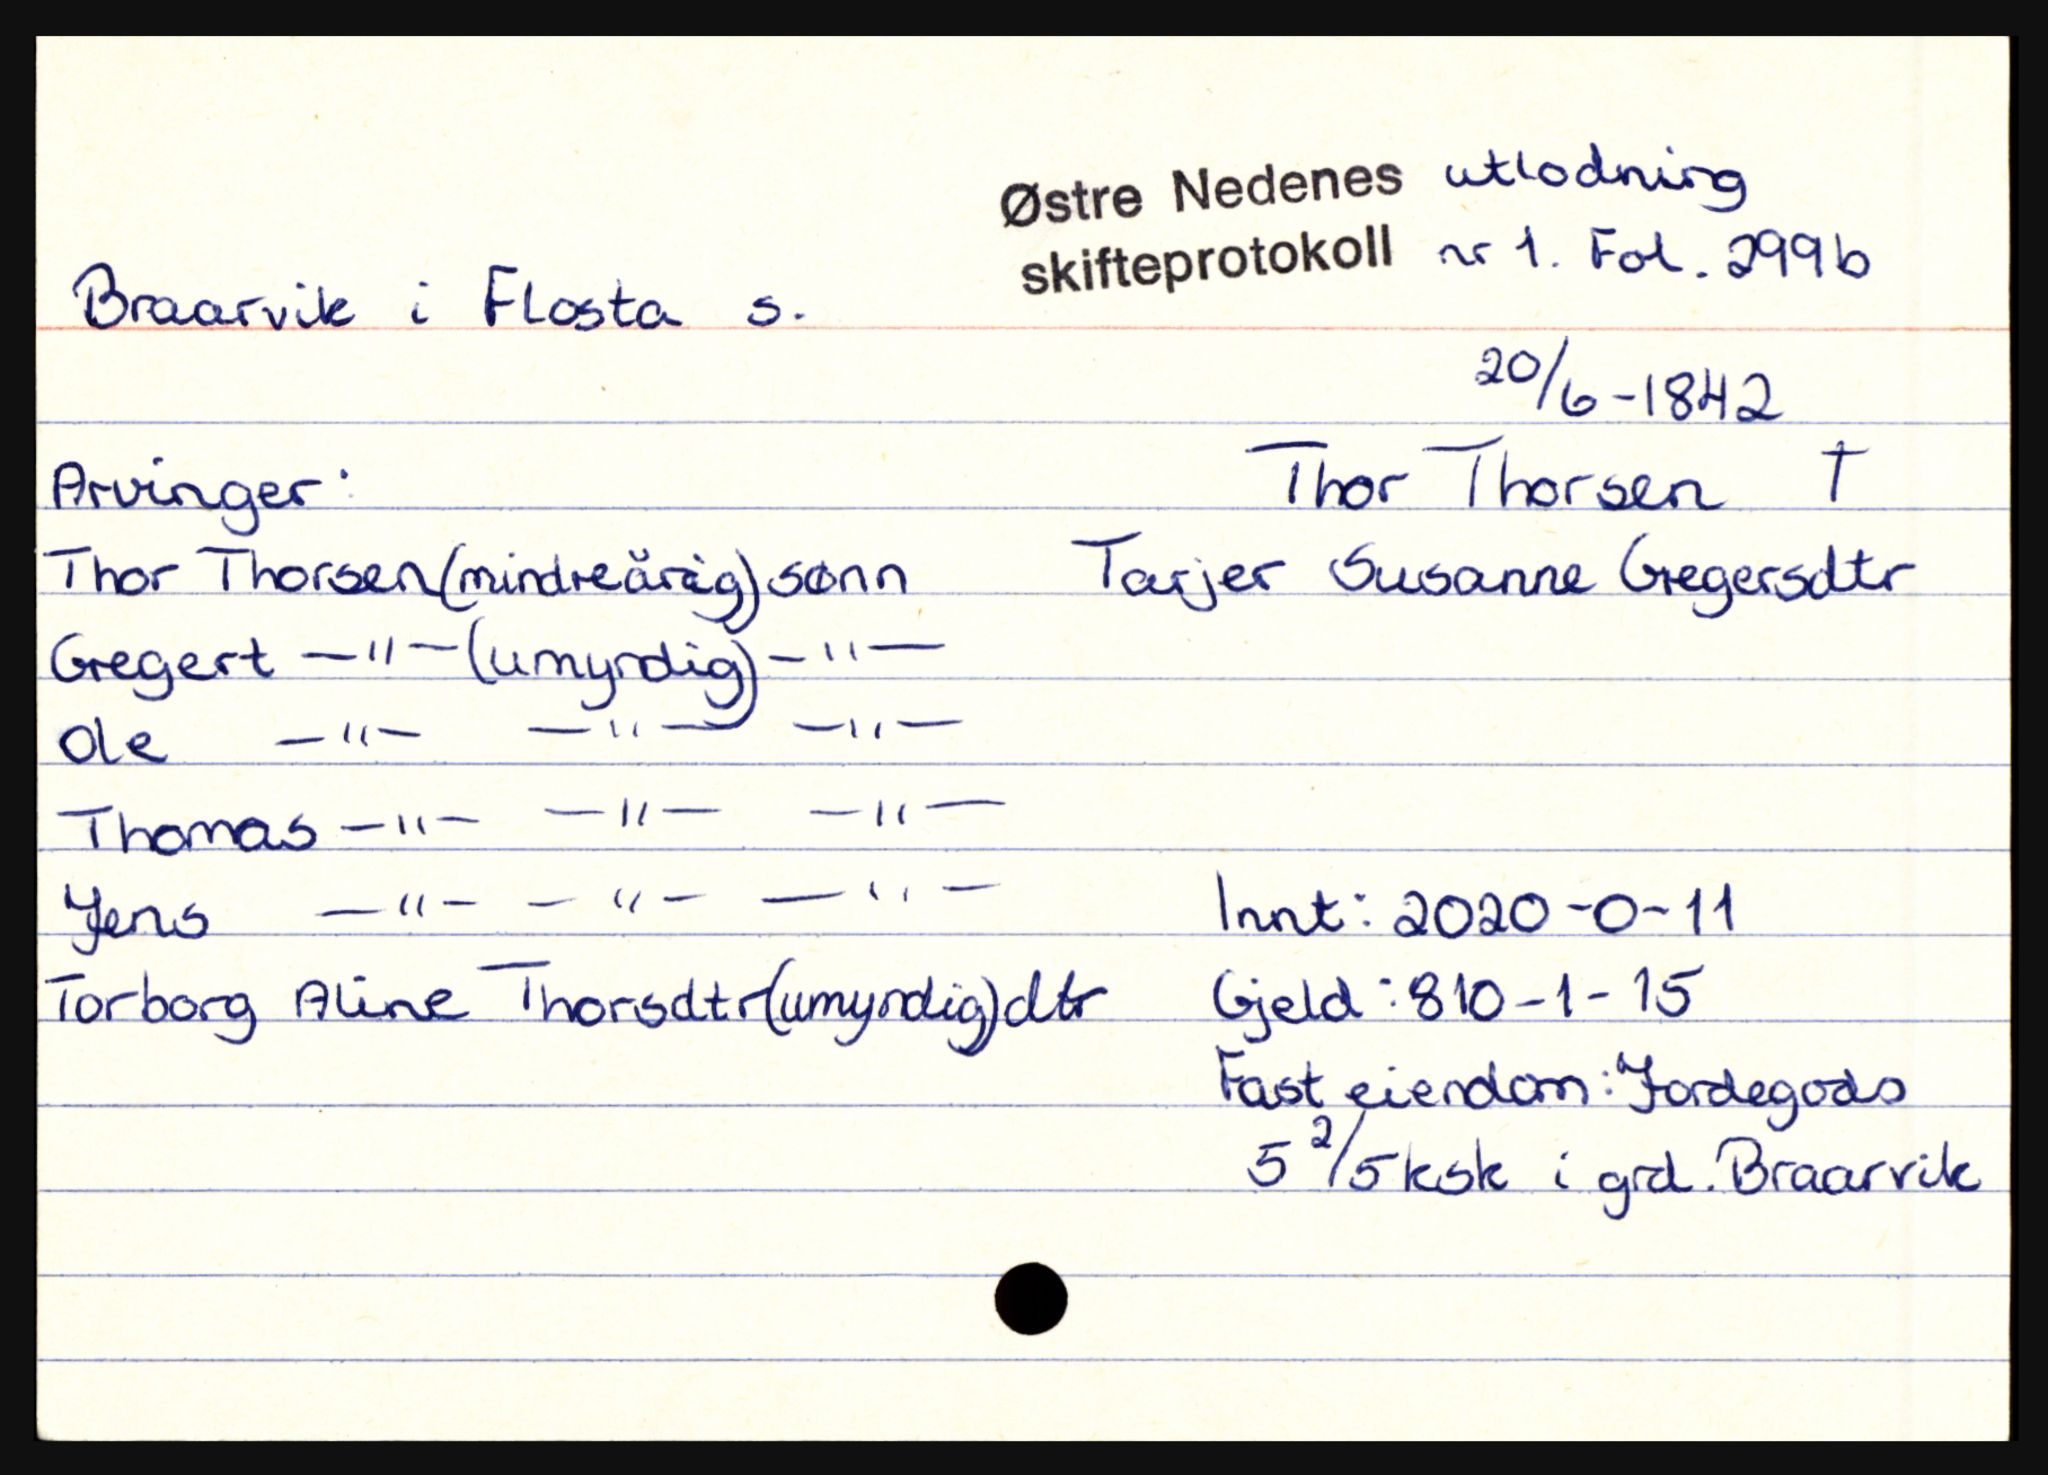 Østre Nedenes utlodning
skifteprotokoll nr 1. Fol. 299b
Braarvik i Flosta s.
20/6-1842
Arvinger:
Thor Thorsen †
Thor Thorsen (mindreårig) sønn
Tarjer Susanne Gregersdtr
Gregert —"— (umyndig) —"—
Ole —"— —"— —"—
Thomas —"— —"— —"—
Jens —"— —"— —"—
Innt: 2020-0-11
Torborg Aline Thorsdtr (umyndig) dtr
Gjeld: 810-1-15
Fast eiendom: Jordegods
5 2/5 ksk i grd. Braarvik